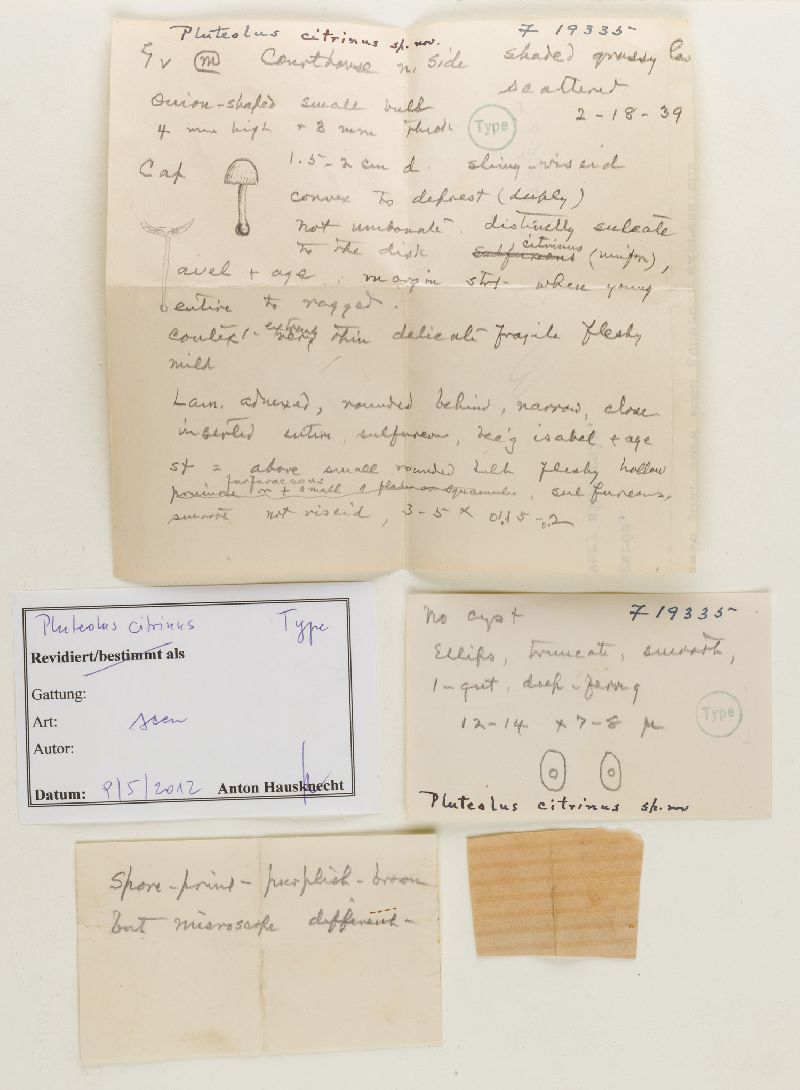 Pluteolus citrinus sp. nov.
F 19335
Gv (m) Courthouse n. side shaded grassy
scattered
Onion-shaped small bulb
2-18-39
4 mm high + 3 mm thick
Type
Cap 1.5-2 cm d. slimy-viscid
convex to deprest (deeply)
not umbonate, distinctly sulcate
to the disk sulfureous citrinus (unifor),
avel + age margin strt when young
entire to ragged.
context very extreme thin delicate fragile fleshy
mild
Lam. adnexed, rounded behind, narrow, close
inserted entire, sulfureous, bec'g isabel + age
st = above small rounded bulb fleshy hollow
pruinose furfuraceous or + small flakes or squamules, sulfureous,
smooth not viscid, 3-5 x 0.15-0.2
Pluteolus citrinus Type
Revidiert/bestimmt als
Gattung:
Art:
Autor:
Datum: 9/5/2012 Anton Hausknecht
No cyst
F 19335
Ellips, truncate, smooth,
1-gut, deep-ferrug
12-14 x 7-8 µ
Type
Pluteolus citrinus sp. nov
Spore-print - purplish-brown
but microscope different-